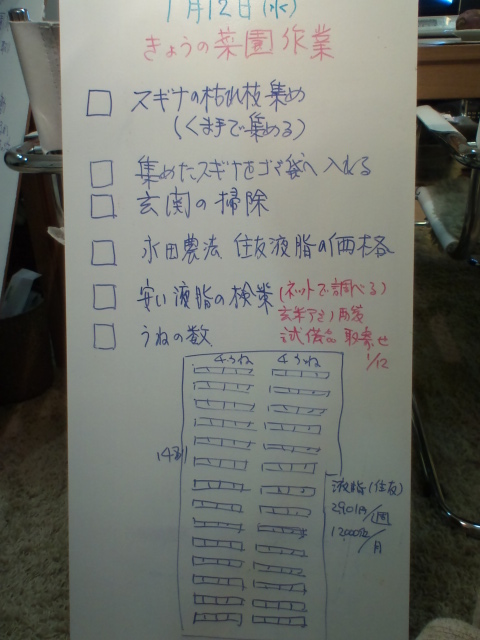 1月12日(水)
きょうの菜園作業
スギナの枯れ枝集め
(くま手で集める)
集めたスギナをゴミ袋へ入れる
玄関の掃除
永田農法 住友液脂の価格
安い液脂の検策
(ネットで調べる)
試供品 取寄せ
1/12
うねの数
4うね 4うね
14列
液脂(住友)
290円/週
/月